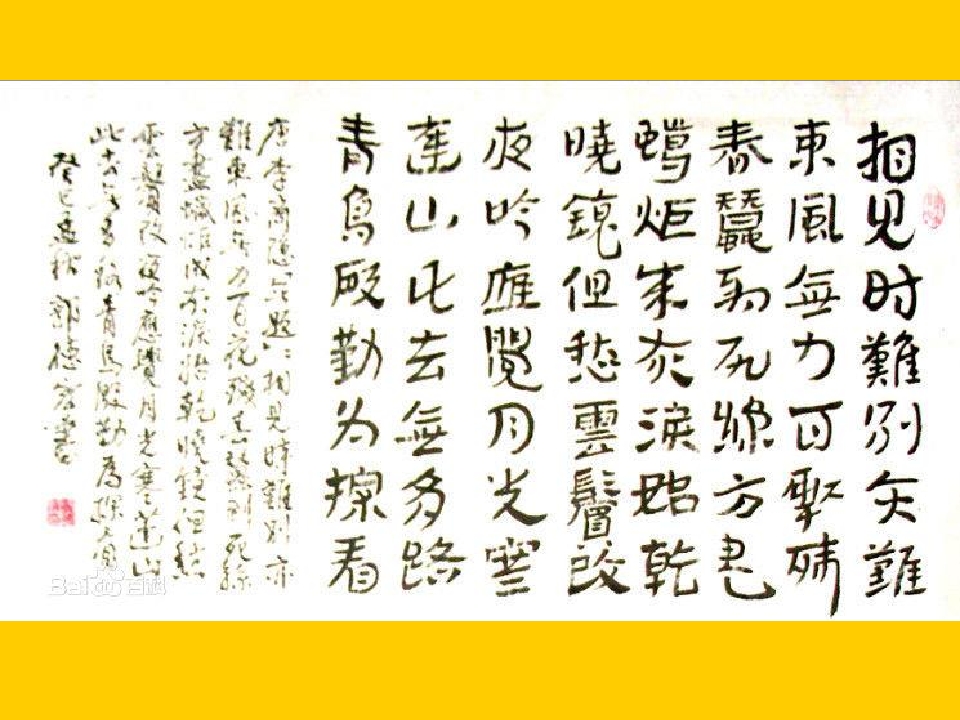 相见时難别亦難
東風無力百花殘
春蠶到死絲方尽
蠟炬成灰淚始乾
曉鏡但愁雲鬢改
夜吟應覺月光寒
蓬山此去無多路
青鳥殷勤为探看
唐李商隱無題相見時難别亦
難東風無力百花殘春蠶到死絲
方盡蠟炬成灰淚始乾曉鏡但愁
雲鬢改夜吟應覺月光寒蓬山
此去無多路青鳥殷勤為探看
癸巳孟秋郭德書
Bai百科